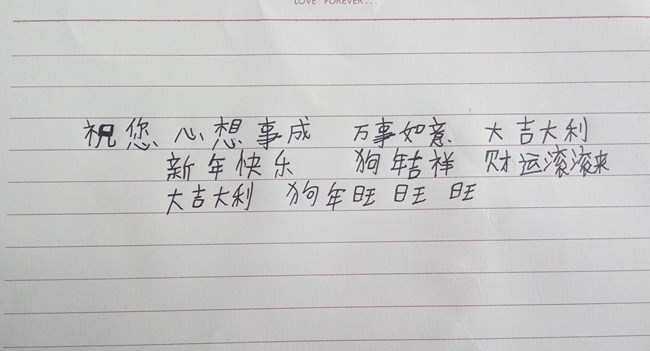 LOVE FOREVER...
祝您 心想事成 万事如意 大吉大利
新年快乐 狗年吉祥 财运滚滚来
大吉大利 狗年旺旺旺